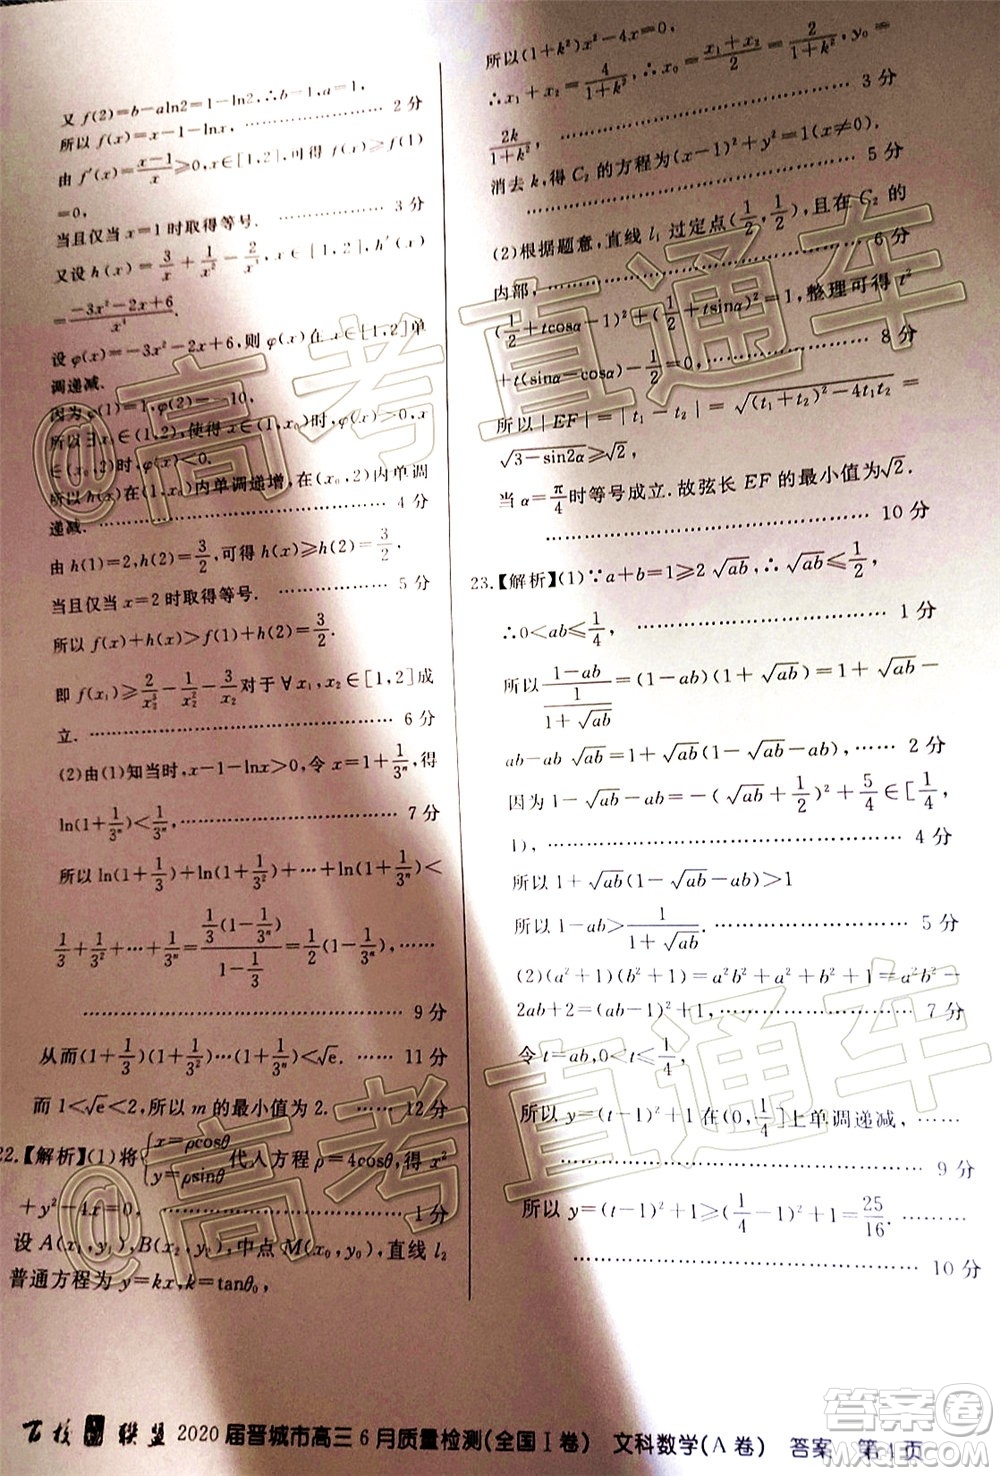 又 f(2)=b-aln2=1-ln2,∴b=1,a=1,
所以 f(x)=x-1-lnx. ………………… 2 分
由 f′(x)=\frac{x-1}{x}≥0,x∈[1,2],可得 f(x)≥f(1)
=0,
当且仅当 x=1 时取得等号. ………………… 3 分
又设 h(x)=\frac{3}{x}+\frac{1}{x²}-\frac{2}{x³},x∈[1,2],h′(x)
=\frac{-3x²-2x+6}{x⁴}.
设 φ(x)=-3x²-2x+6,则 φ(x)在 x∈[1,2]单
调递减.
因为 φ(1)=1,φ(2)=-10,
所以∃x₀∈(1,2),使得 x∈(1,x₀)时,φ(x)>0,x
∈(x₀,2)时,φ(x)<0.
所以 h(x)在(1,x₀)内单调递增,在(x₀,2)内单调
递减. ………………… 4 分
由 h(1)=2,h(2)=\frac{3}{2},可得 h(x)≥h(2)=\frac{3}{2}.
当且仅当 x=2 时取得等号. ………………… 5 分
所以 f(x)+h(x)>f(1)+h(2)=\frac{3}{2}.
即 f(x₁)≥\frac{2}{x₂³}-\frac{1}{x₂²}-\frac{3}{x₂}对于 ∀x₁,x₂∈[1,2]成
立. ………………… 6 分
(2)由(1)知当时,x-1-lnx>0,令 x=1+\frac{1}{3ⁿ},得
ln(1+\frac{1}{3ⁿ})<\frac{1}{3ⁿ}, ………………… 7 分
所以 ln(1+\frac{1}{3})+ln(1+\frac{1}{3²})+…+ln(1+\frac{1}{3ⁿ})<
\frac{1}{3}+\frac{1}{3²}+…+\frac{1}{3ⁿ}=\frac{\frac{1}{3}(1-\frac{1}{3ⁿ})}{1-\frac{1}{3}}=\frac{1}{2}(1-\frac{1}{3ⁿ}).
………………… 9 分
从而(1+\frac{1}{3})(1+\frac{1}{3²})…(1+\frac{1}{3ⁿ})<√e. …… 11 分
而 1<√e<2,所以 m 的最小值为 2. ……… 12 分
22.【解析】(1)将{x=ρcosθ y=ρsinθ 代人方程 ρ=4cosθ,得 x²
+y²-4x=0. ………………… 1 分
设 A(x₁,y₁),B(x₂,y₂),中点 M(x₀,y₀),直线 l₂
普通方程为 y=kx,k=tanθ₀,
所以(1+k²)x²-4x=0,
∴x₁+x₂=\frac{4}{1+k²},∴x₀=\frac{x₁+x₂}{2}=\frac{2}{1+k²},y₀=
\frac{2k}{1+k²}, ………………… 3 分
消去 k,得 C₂ 的方程为(x-1)²+y²=1(x≠0).
………………… 5 分
(2)根据题意,直线 l₁ 过定点(\frac{1}{2},\frac{1}{2}),且在 C₂ 的
内部, ………………… 6 分
(\frac{1}{2}+tcosα-1)²+(\frac{1}{2}+tsinα)²=1,整理可得 t²
+t(sinα-cosα)-\frac{1}{2}=0. ………………… 8 分
所以|EF|=|t₁-t₂|=√((t₁+t₂)²-4t₁t₂)=
√(3-sin2α)≥√2.
当 α=\frac{π}{4}时等号成立.故弦长 EF 的最小值为√2.
………………… 10 分
23.【解析】(1)∵a+b=1≥2√ab,∴√ab≤\frac{1}{2},
∴0<ab≤\frac{1}{4}, ………………… 1 分
所以\frac{1-ab}{\frac{1}{1+√ab}}=(1-ab)(1+√ab)=1+√ab-
ab-ab√ab=1+√ab(1-√ab-ab), …… 2 分
因为 1-√ab-ab=-(√ab+\frac{1}{2})²+\frac{5}{4}∈[\frac{1}{4},
1), ………………… 4 分
所以 1+√ab(1-√ab-ab)>1
所以 1-ab>\frac{1}{1+√ab}. ………………… 5 分
(2)(a²+1)(b²+1)=a²b²+a²+b²+1=a²b²-
2ab+2=(ab-1)²+1, ………………… 7 分
令 t=ab,0<t≤\frac{1}{4},
所以 y=(t-1)²+1 在(0,\frac{1}{4}]上单调递减, ……
………………… 9 分
所以 y=(t-1)²+1≥(\frac{1}{4}-1)²+1=\frac{25}{16}.
………………… 10 分
百校联盟 2020 届晋城市高三 6 月质量检测(全国 I 卷) 文科数学(A 卷) 答案 第 4 页
@高考直通车
@高考直通车
答案圈
MXQE.COM